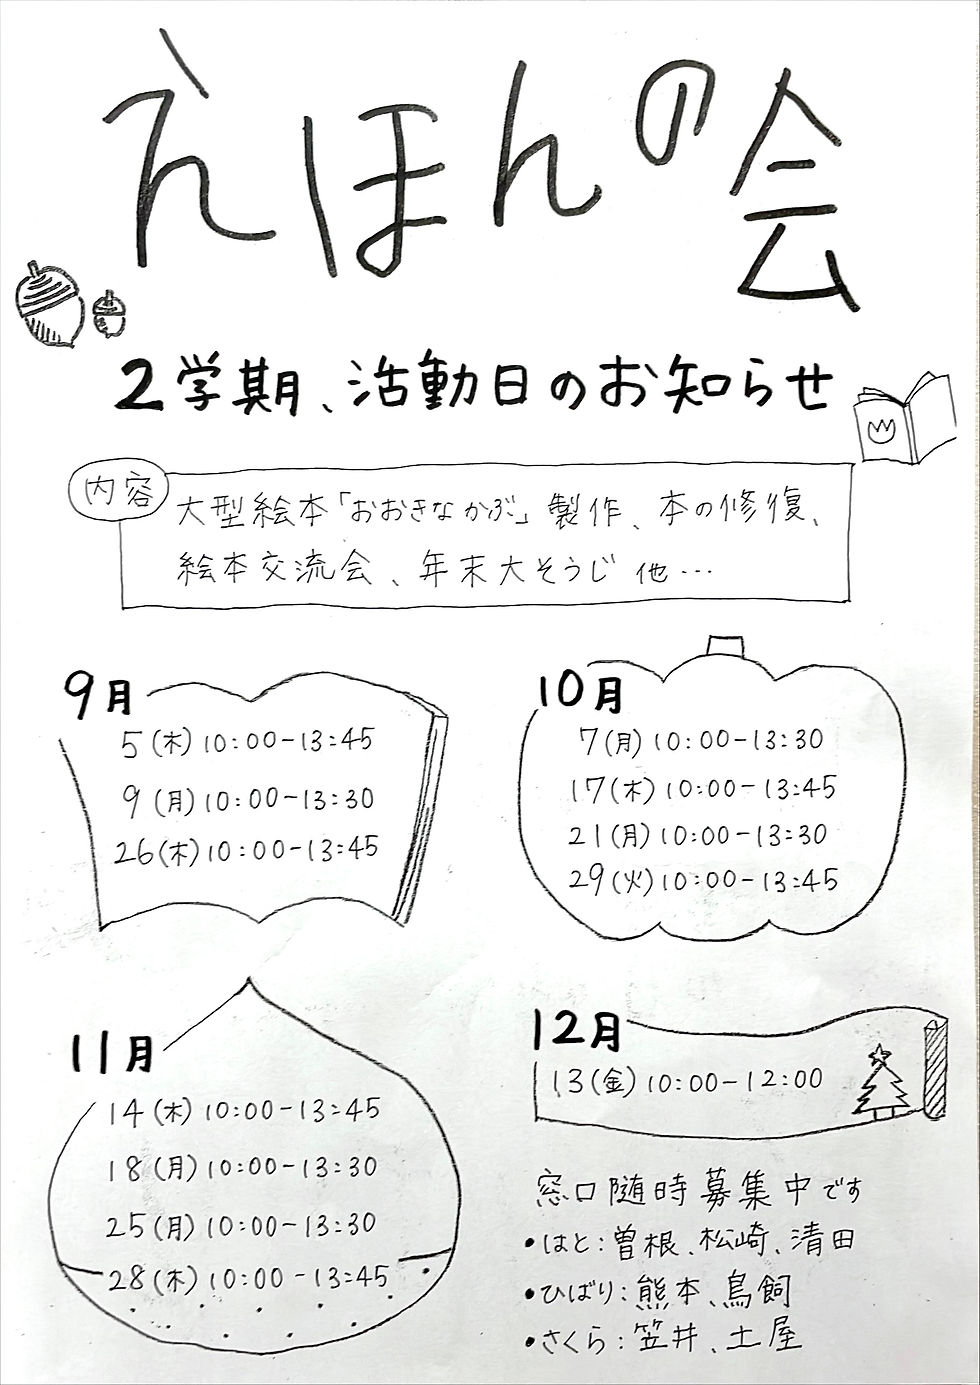 えほんの会
2学期、活動日のお知らせ
内容
大型絵本「おおきなかぶ」製作、本の修復、
絵本交流会、年末大そうじ 他…
9月
5(木)10:00-13:45
9(月)10:00-13:30
26(木)10:00-13:45
10月
7(月)10:00-13:30
17(木)10:00-13:45
21(月)10:00-13:30
29(火)10:00-13:45
11月
14(木)10:00-13:45
18(月)10:00-13:30
25(月)10:00-13:30
28(木)10:00-13:45
12月
13(金)10:00-12:00
窓口随時募集中です
•はと:曽根、松崎、清田
•ひばり:熊本、鳥飼
•さくら:笠井、土屋